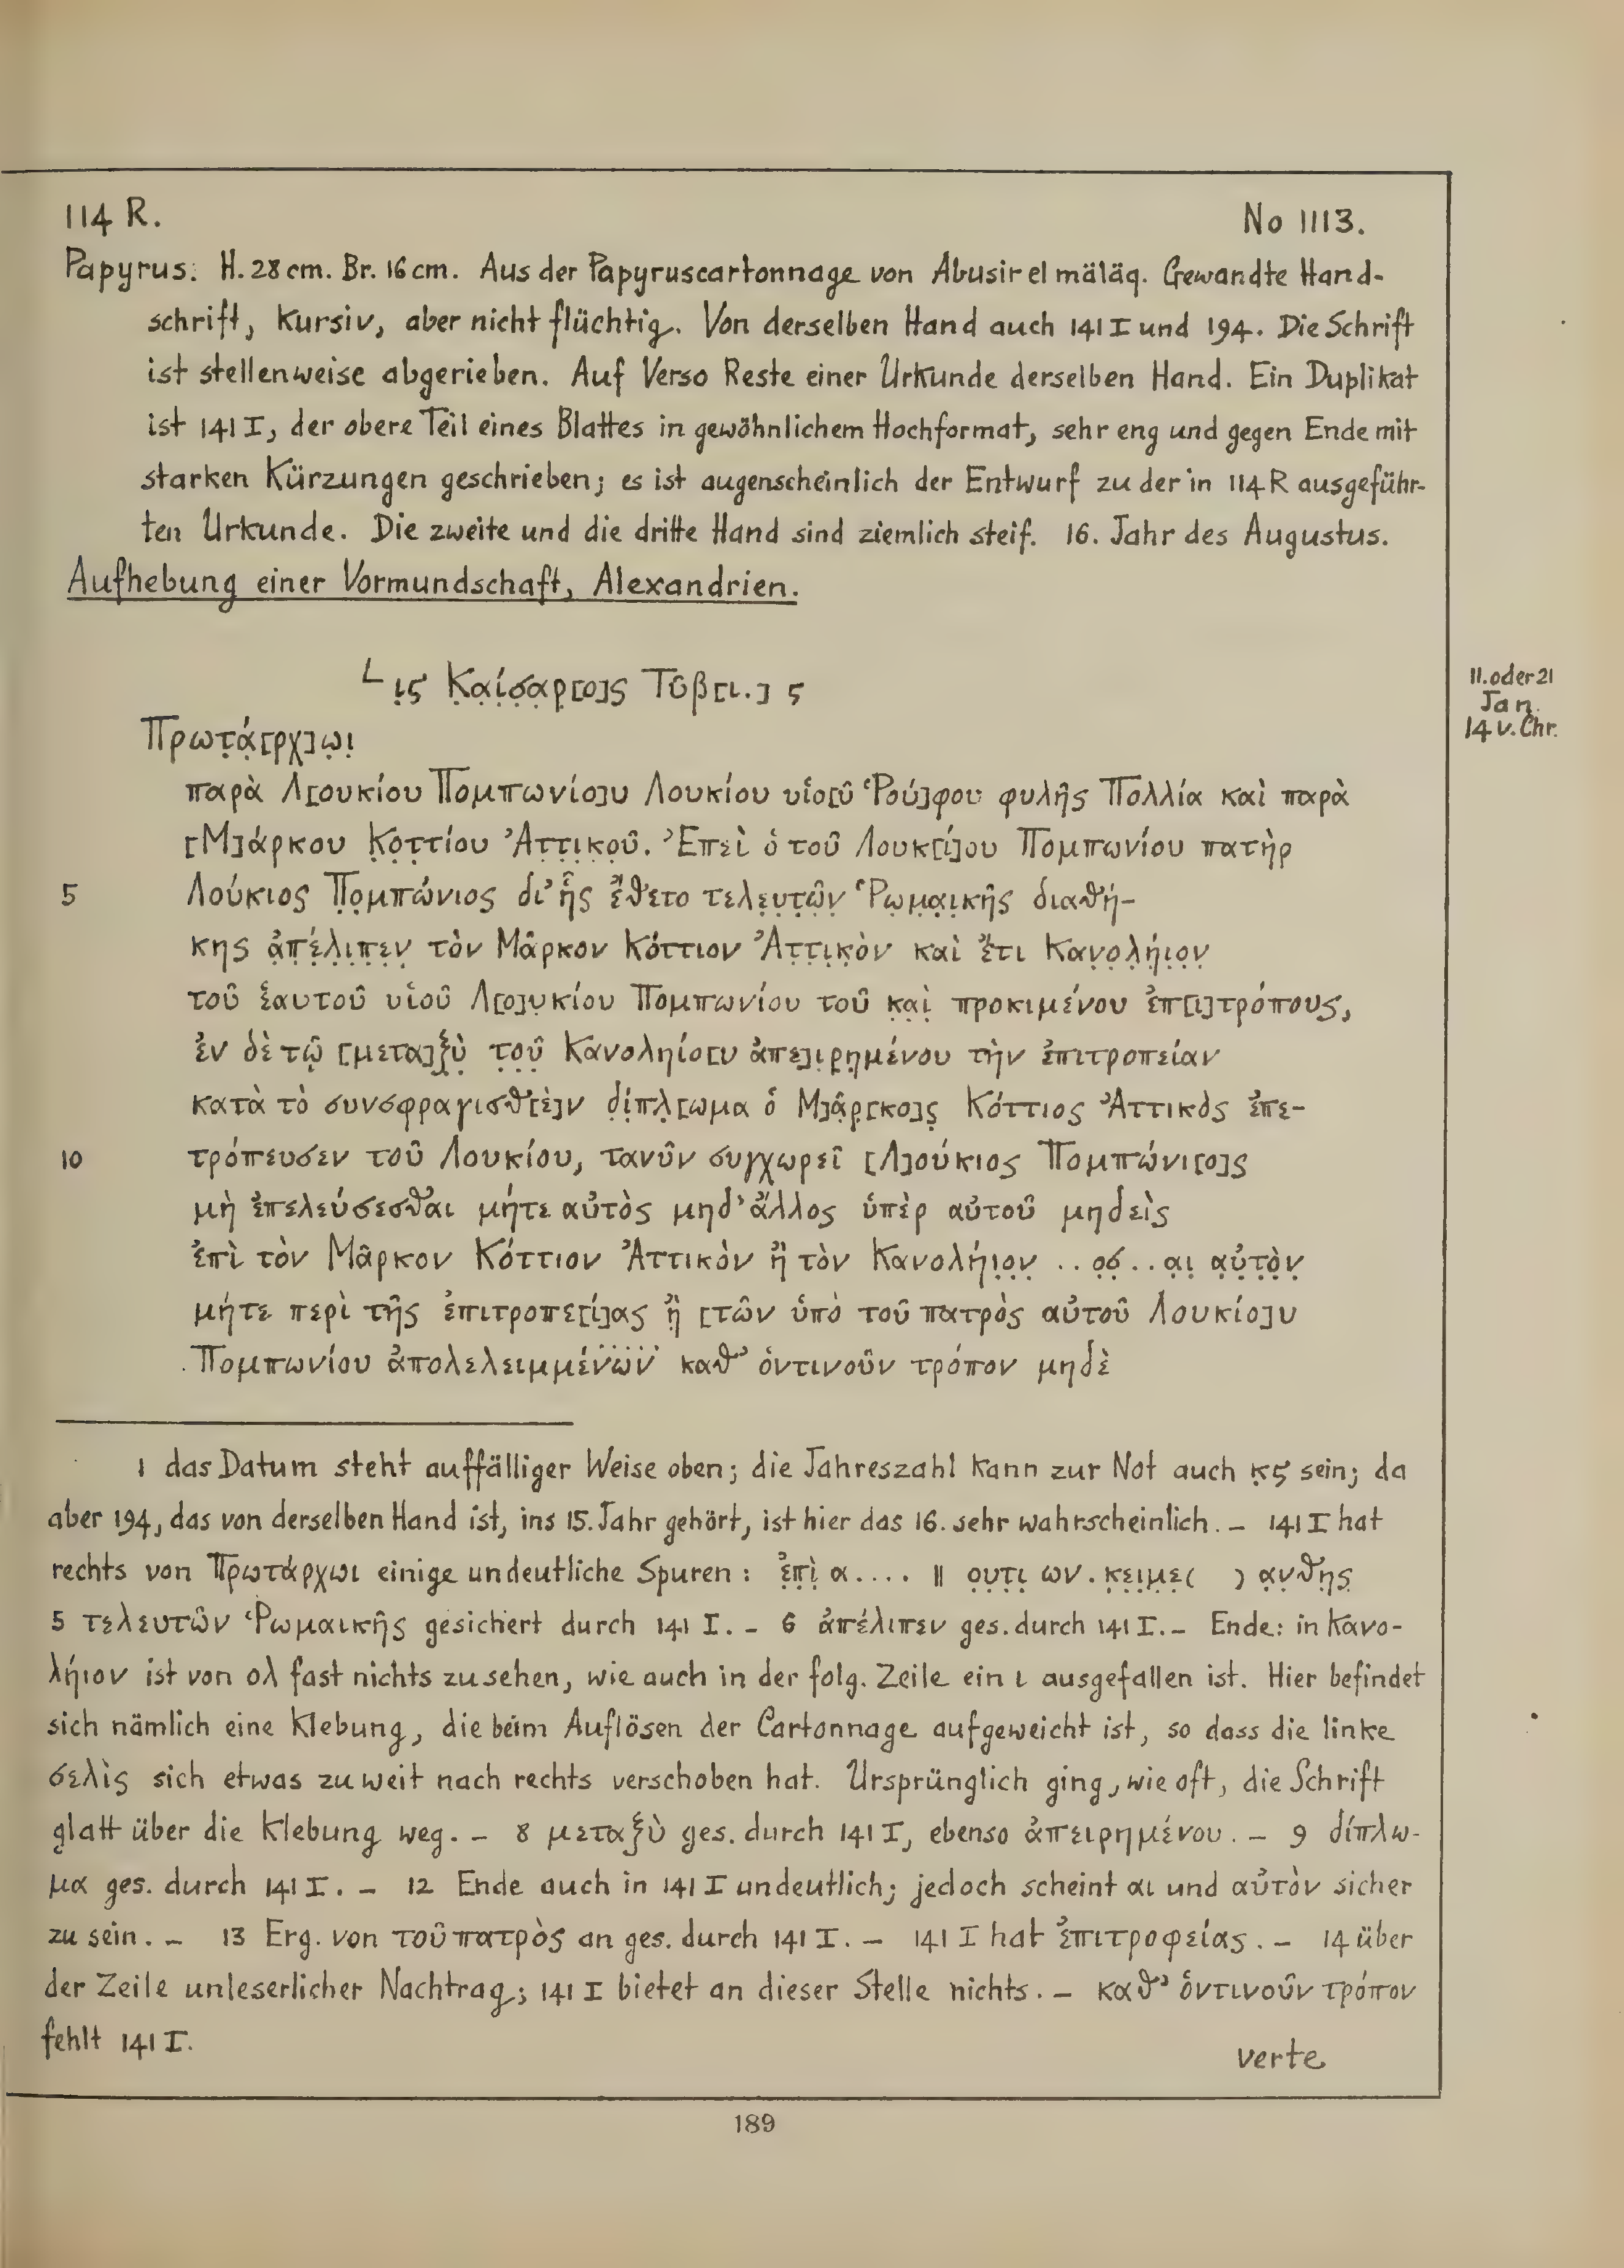 114 R.
No 1113.
Papyrus: H. 28 cm. Br. 16 cm. Aus der Papyruscartonnage von Abusir el mäläq. Gewandte Hand-
schrift, Kursiv, aber nicht flüchtig. Von derselben Hand auch 141 I und 194. Die Schrift
ist stellenweise abgerieben. Auf Verso Reste einer Urkunde derselben Hand. Ein Duplikat
ist 141 I, der obere Teil eines Blattes in gewöhnlichem Hochformat, sehr eng und gegen Ende mit
starken Kürzungen geschrieben; es ist augenscheinlich der Entwurf zu der in 114 R ausgeführ-
ten Urkunde. Die zweite und die dritte Hand sind ziemlich steif. 16. Jahr des Augustus.
Aufhebung einer Vormundschaft, Alexandrien.
└ ι̣ϛ Κ̣α̣ί̣σ̣α̣ρ̣[ο]ς Τῦβ[ι.] ϛ
11. oder 21
Jan.
14 v. Chr.
Πρωτ̣ά̣[ρχ]ω̣ι̣
παρὰ Λ[ουκίου Πομπωνίο]υ Λουκίου υἱο[ῦ Ῥού]φου φυλῆς Πολλία καὶ παρὰ
[Μ]άρκου Κ̣ο̣τ̣τίου Ἀτ̣τ̣ι̣κο̣ῦ. Ἐπεὶ ὁ τοῦ Λουκ[ί]ου Πομπωνίου πατὴρ
5 Λούκιος Π̣ο̣μπώνιος δι’ ἧς ἔ̣θετο τελε̣υ̣τ̣ῶ̣ν̣ Ῥω̣μ̣α̣ι̣κῆς διαθή-
κης ἀ̣π̣έ̣λ̣ι̣π̣ε̣ν̣ τὸν Μᾶρκον Κόττιον Ἀτ̣τ̣ι̣κ̣ὸν καὶ ἔτι Καν̣ο̣λ̣ή̣ι̣ο̣ν̣
τοῦ ἑαυτοῦ υἱοῦ Λ[ο]υ̣κίου Πομπωνίου τοῦ κ̣α̣ὶ̣ προκιμένου ἐπ[ι]τρόπους,
ἐν δὲ τῷ [μετα]ξ̣ὺ̣ τ̣ο̣ῦ̣ Κανοληίο[υ ἀπε]ι̣ρ̣η̣μένου τὴν ἐπιτροπείαν
κατὰ τὸ συνσφραγισθ[ὲ]ν δ̣ί̣π̣λ̣[ωμα ὁ Μ]ᾶ̣ρ̣[κο]ς̣ Κόττιος Ἀττικὸς ἐπε-
10 τρόπευσεν τοῦ Λουκίου, τανῦν συγχωρεῖ [Λ]ούκιος Πομπώνι[ο]ς
μὴ ἐπελεύσεσθαι μήτε αὐτὸς μηδ’ ἄλλος ὑπὲρ αὐτοῦ μηδεὶς
ἐπὶ τὸν Μᾶρκον Κόττιον Ἀττικὸν ἢ τὸν Κανολήι̣ο̣ν̣ . . ο̣σ̣ . . α̣ι̣ α̣ὐ̣τ̣ὸ̣ν̣
μήτε περὶ τῆς ἐπιτροπε[ί]ας ἢ̣ [τῶν ὑπὸ τοῦ πατρὸς αὐτοῦ Λουκίο]υ
Πομπωνίου ἀπολελειμμένων καθ’ ὁντινοῦν τρόπον μηδὲ
1 das Datum steht auffälliger Weise oben; die Jahreszahl kann zur Not auch κ̣ϛ sein; da
aber 194, das von derselben Hand ist, ins 15. Jahr gehört, ist hier das 16. sehr wahrscheinlich. – 141 I hat
rechts von Πρωτάρχωι einige undeutliche Spuren: ἐ̣π̣ὶ̣ α . . . . || ο̣υ̣τ̣ι̣ ων . κ̣ε̣ι̣μ̣ε̣( ) α̣ν̣θ̣η̣ς̣
5 τελευτῶν Ῥωμαικῆς gesichert durch 141 I. – 6 ἀπέλιπεν ges. durch 141 I. – Ende: in Κανο-
λήιον ist von ολ fast nichts zu sehen, wie auch in der folg. Zeile ein ι ausgefallen ist. Hier befindet
sich nämlich eine Klebung, die beim Auflösen der Cartonnage aufgeweicht ist, so dass die linke
σελὶς sich etwas zu weit nach rechts verschoben hat. Ursprünglich ging, wie oft, die Schrift
glatt über die Klebung weg. – 8 μεταξὺ ges. durch 141 I, ebenso ἀπειρημένου. – 9 δίπλω-
μα ges. durch 141 I. – 12 Ende auch in 141 I undeutlich; jedoch scheint αι und αὐτὸν sicher
zu sein. – 13 Erg. von τοῦ πατρὸς an ges. durch 141 I. – 141 I hat ἐπιτροφείας. – 14 über
der Zeile unleserlicher Nachtrag; 141 I bietet an dieser Stelle nichts. – καθ’ ὁντινοῦν τρόπον
fehlt 141 I.
verte
189